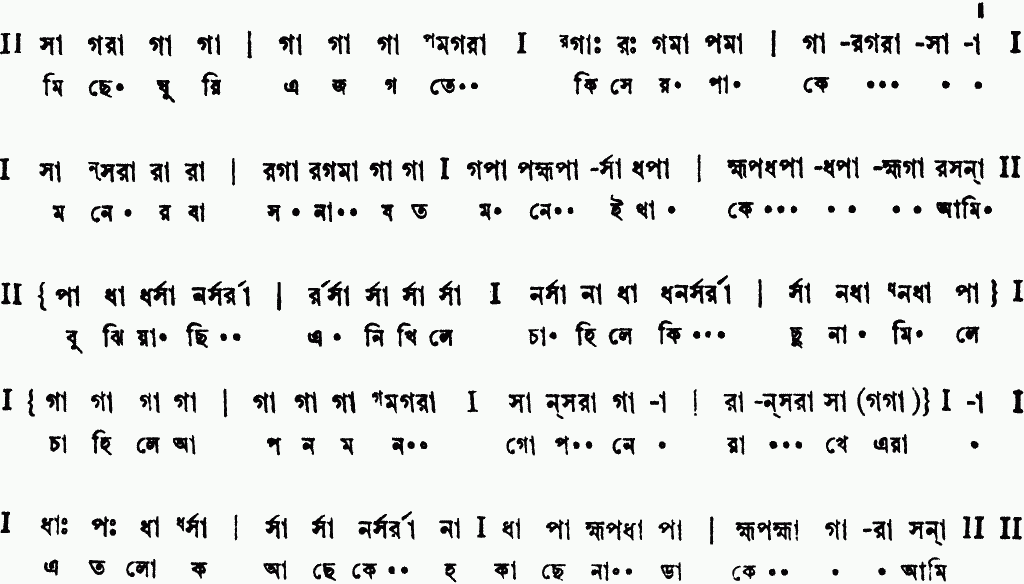 II সা গরা গা গা | গা গা গা ᵖমগরা I রগাঃ রঃ গমা পমা | গা -রগরা -সা -া I
মি ছে॰ ঘু রি এ জ গ তে॰॰ কি সে র॰ পা॰ কে ॰॰॰ ॰ ॰
I সা ন্সরা রা রা | রগা রগমা গা গা I গপা পহ্মপা -র্সা ধপা | হ্মপধপা -ধপা -হ্মগা রসন্া II
ম নে॰ র বা স॰ না॰॰ য ত ম॰ নে॰॰ ই থা॰ কে॰॰॰ ॰॰ ॰॰ আমি॰
II { পা ধা ধর্সা নর্সর্রা | র্র্সা র্সা র্সা র্সা I নর্সা না ধা ধনর্সর্রা | র্সা নধা ধনধা পা } I
বু ঝি য়া॰ ছি॰॰ এ॰ নি খি লে চা॰ হি লে কি॰॰॰ ছু না॰ মি॰ লে
I { গা গা গা গা | গা গা গা গমগরা I সা ন্সরা গা -া | রা -ন্সরা সা (গগা)} I -া I
চা হি লে আ প ন ম ন॰॰ গো প॰॰ নে ॰ রা ॰॰॰ খে এরা ॰
I ধাঃ পঃ ধা ধর্সা | র্সা র্সা নর্সর্রা না I ধা পা হ্মপধা পা | হ্মপহ্মা গা -রা সন্া II II
এ ত লো ক আ ছে কে॰॰ হ কা ছে না॰॰ ডা কে॰॰ ॰ ॰ আমি